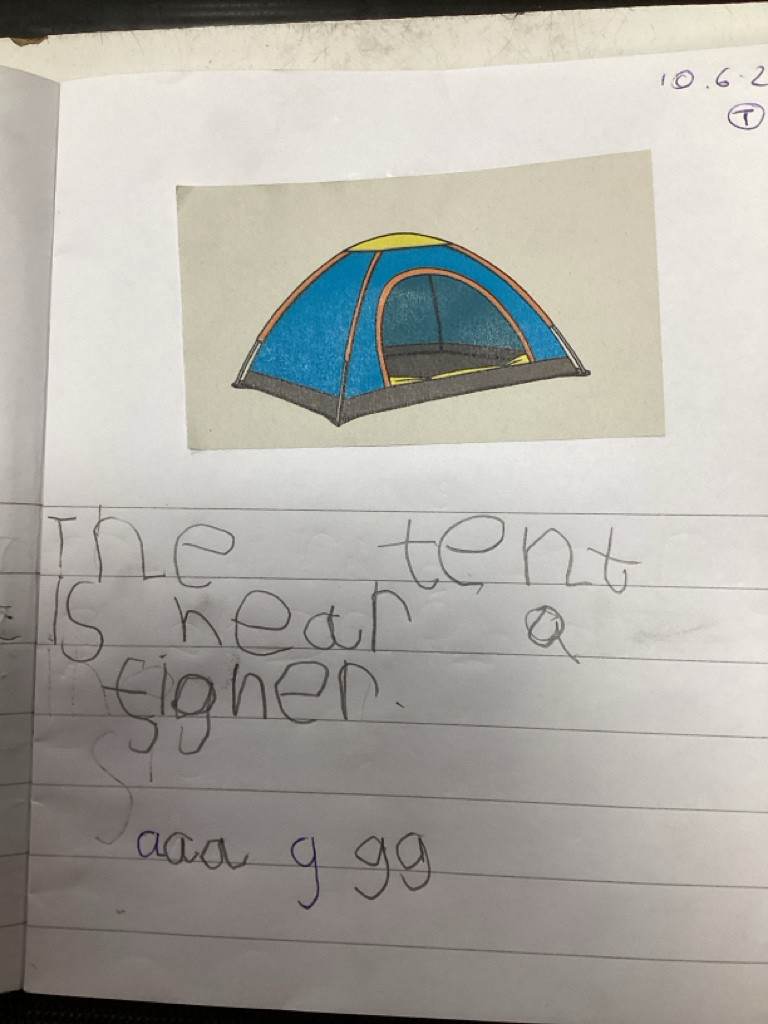 10.6.2
T
The tent
is near a
tigher.
aaa g gg